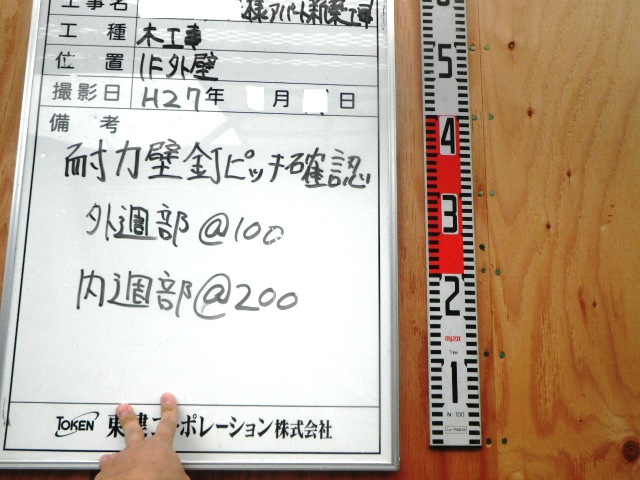 工事名 様アパート新築工事
工種 木工事
位置 1F外壁
撮影日 H27年 月 日
備考
耐力壁釘ピッチ確認
外週部 @100
内週部@200
TOKEN 東建コーポレーション株式会社
5
4
3
2
myzox
1m
1
N-100